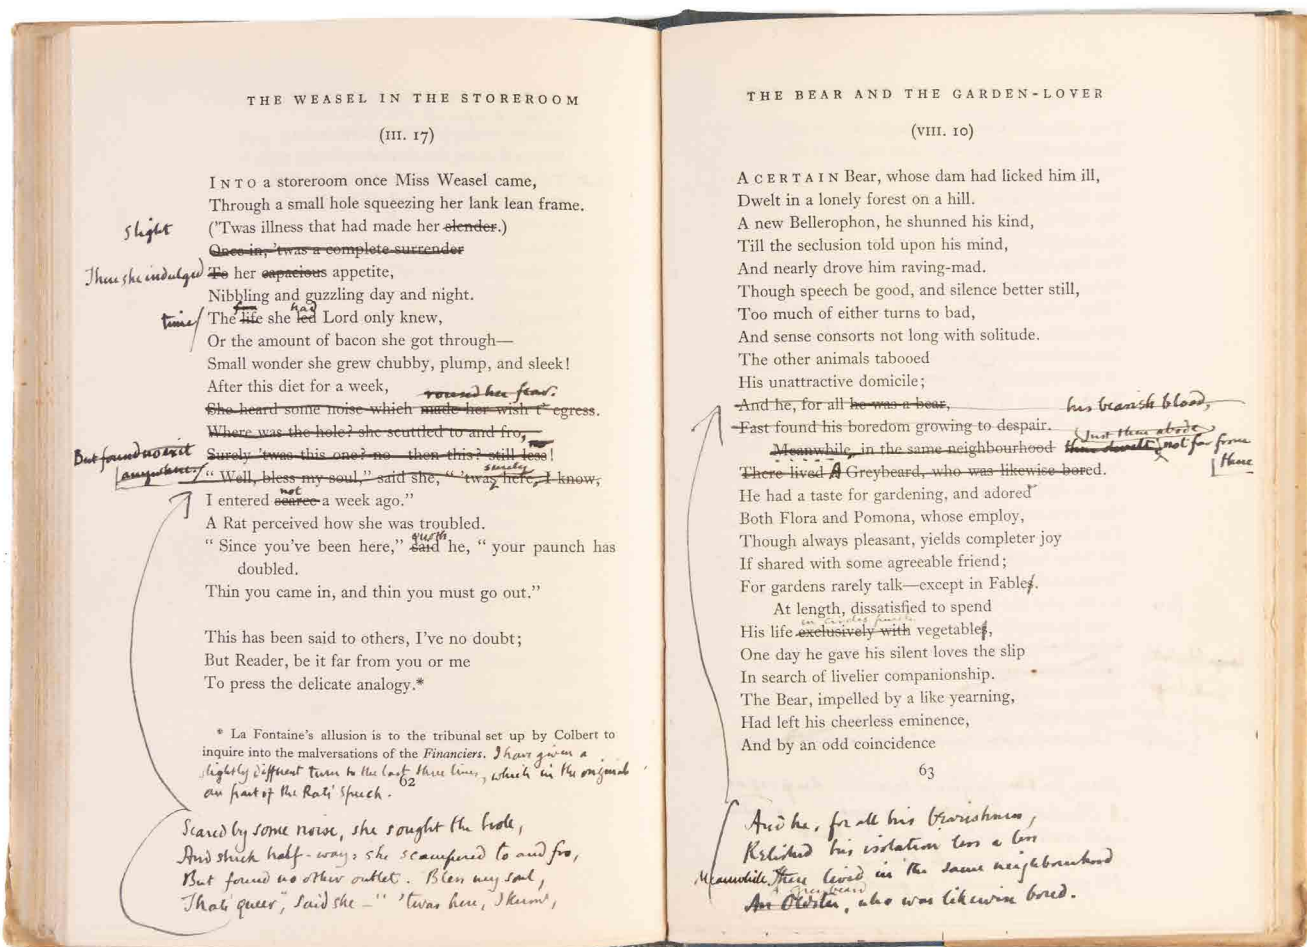 THE WEASEL IN THE STOREROOM
(III. 17)
INTO a storeroom once Miss Weasel came,
Through a small hole squeezing her lank lean frame.
slight
('Twas illness that had made her slender.)
Once in, 'twas a complete surrender
Thus she indulged
To her capacious appetite,
Nibbling and guzzling day and night.
time/
had
The life she led Lord only knew,
Or the amount of bacon she got through—
Small wonder she grew chubby, plump, and sleek!
After this diet for a week,
round her fear.
She heard some noise which made her wish t' egress.
Where was the hole? she scuttled to and fro,
But found no exit
no
Surely 'twas this one? no—then this? still less!
anywhere/
surely
" Well, bless my soul," said she, " 'twas here, I know,
not
I entered scarce a week ago."
A Rat perceived how she was troubled.
quoth
" Since you've been here," said he, " your paunch has
doubled.
Thin you came in, and thin you must go out."
This has been said to others, I've no doubt;
But Reader, be it far from you or me
To press the delicate analogy.*
* La Fontaine's allusion is to the tribunal set up by Colbert to
inquire into the malversations of the Financiers. I have given a
slightly different turn to the last three lines, which in the original
are part of the Rats' Speech.
62
Scared by some noise, she sought the hole,
And stuck half-way: she scampered to and fro,
But found no other outlet. Bless my soul,
That's queer", said she —" 'twas here, I know,
THE BEAR AND THE GARDEN-LOVER
(VIII. 10)
A CERTAIN Bear, whose dam had licked him ill,
Dwelt in a lonely forest on a hill.
A new Bellerophon, he shunned his kind,
Till the seclusion told upon his mind,
And nearly drove him raving-mad.
Though speech be good, and silence better still,
Too much of either turns to bad,
And sense consorts not long with solitude.
The other animals tabooed
His unattractive domicile;
And he, for all he was a bear, his bearish blood,
Fast found his boredom growing to despair.
Just then abode
Meanwhile, in the same neighbourhood then dwelt, not far from
there
There lived A Greybeard, who was likewise bored.
He had a taste for gardening, and adored
Both Flora and Pomona, whose employ,
Though always pleasant, yields completer joy
If shared with some agreeable friend;
For gardens rarely talk—except in Fables.
At length, dissatisfied to spend
His life exclusively with vegetables,
One day he gave his silent loves the slip
In search of livelier companionship.
The Bear, impelled by a like yearning,
Had left his cheerless eminence,
And by an odd coincidence
63
And he, for all his bearishness,
Relished his isolation less & less
Meanwhile, There lived in the same neighbourhood
A Greybeard
An Oldster, who was likewise bored.